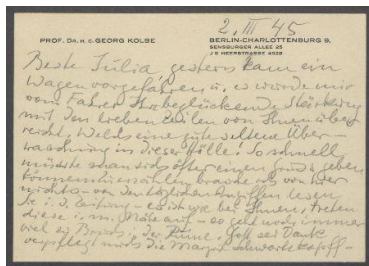 2. III 45
PROF. DR. H. C. GEORG KOLBE
BERLIN-CHARLOTTENBURG 9,
SENSBURGER ALLEE 25
J 9 HEERSTRASSE 4028
Beste Julia, gestern kam ein
Wagen vorgefahren u. es wurde mir
vom Fahrer Ihre beglückende Stärkung
mit den lieben Zeilen von Ihnen über
reicht. Welch eine gute seltene Über-
raschung in dieser Hölle! So schnell
müsste man sich öfter einen geben
können. erzählen brauche ich von hier
nichts – von den täglichen Angriffen lesen
Sie i. d. Zeitung – es ist wie bei Ihnen, treten
diese i. m. Nähe auf – so geht noch immer
viel zu Bruch i. der Ruine. Gott sei Dank
verpflegt mich die